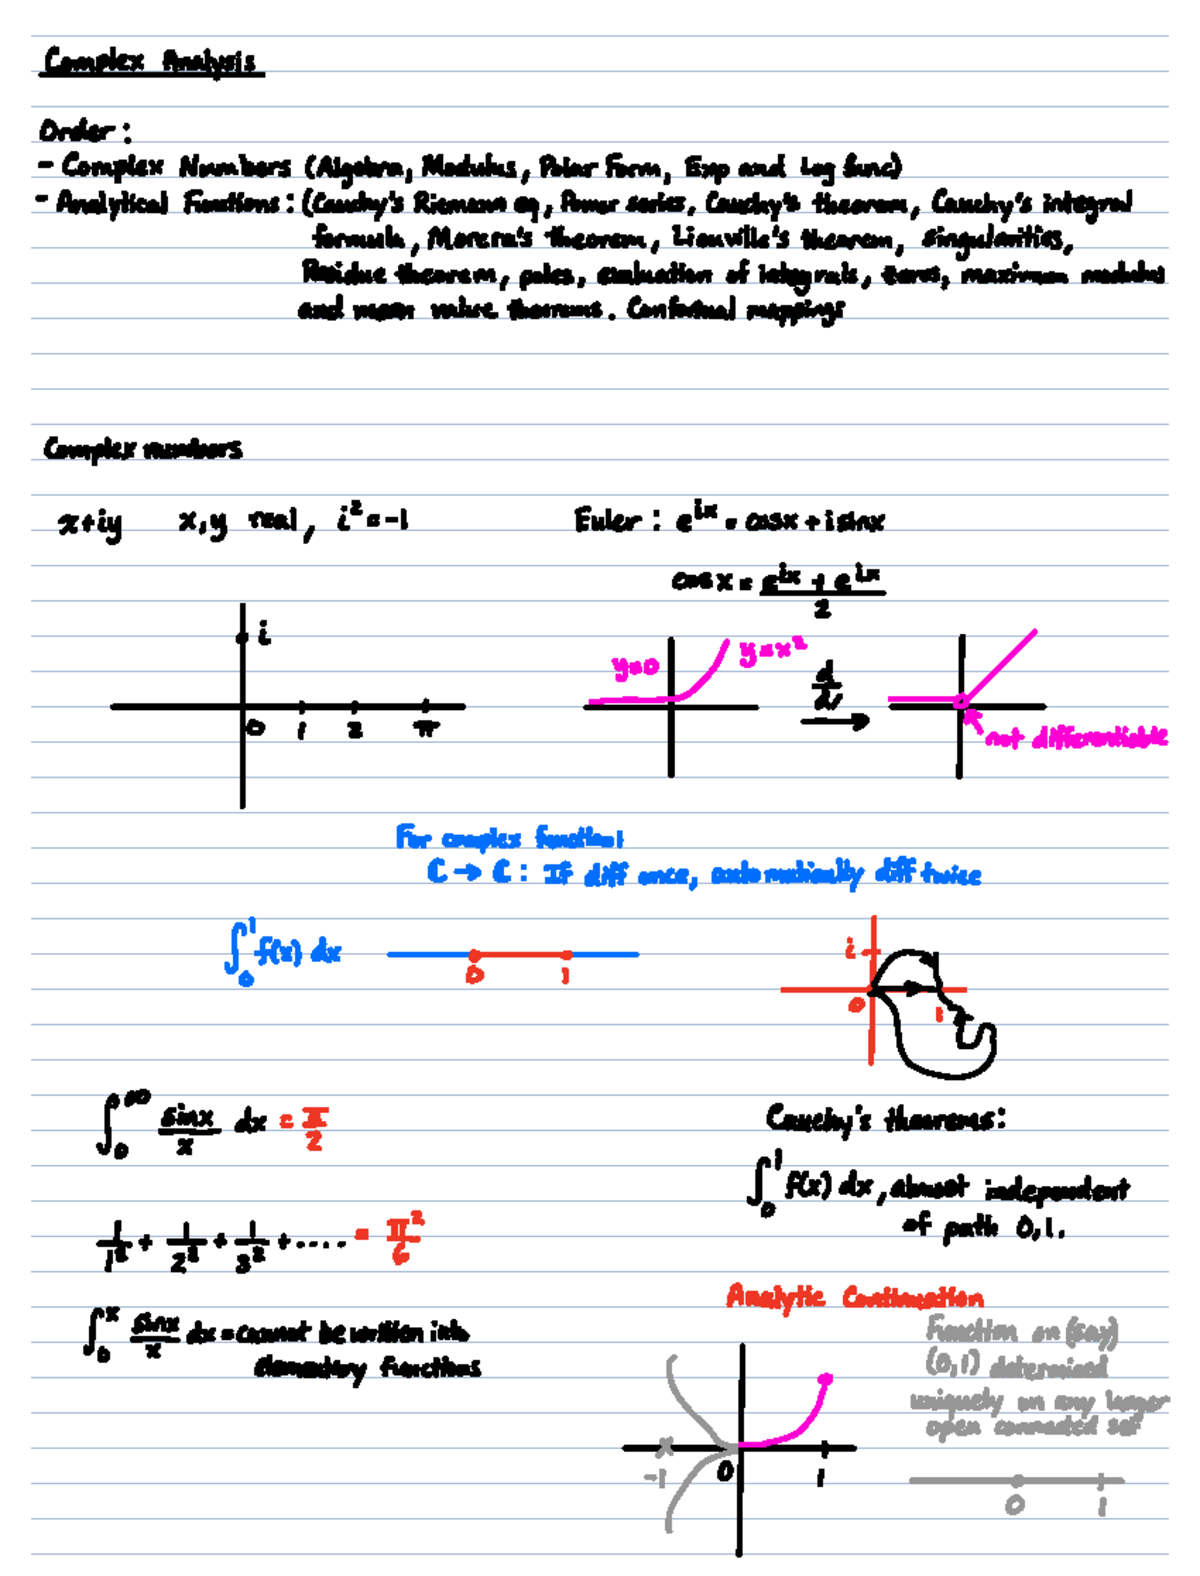 Complex Analysis
Order:
- Complex Numbers (Algebra, Modulus, Polar Form, Exp and Log func)
- Analytical Functions: (Cauchy's Riemann eq, Power series, Cauchy's theorem, Cauchy's integral
formula, Morera's theorem, Liouville's theorem, singularities,
Residue theorem, poles, evaluation of integrals, zeros, maximum modulus
and mean value theorems. Conformal mappings
Complex numbers
x+iy x,y real, i² = -1
Euler: e^{ix} = cosx + i sinx
cos x = (e^{ix} + e^{ix})/2
i
0 1 2 π
y=0 y=x²
d/dx
not differentiable
For complex function:
ℂ → ℂ: If diff once, automatically diff twice
∫₀¹ f(x) dx
0 1
i
0 1
∫₀^∞ sinx/x dx = π/2
Cauchy's theorems:
∫₀¹ f(x) dx, almost independent
of path 0,1.
1/1² + 1/2² + 1/3² + .... = π²/6
∫₀ˣ sinx/x dx = cannot be written into
elementary functions
Analytic Continuation
Function on (say)
(0,1) determined
uniquely on any larger
open connected set
-1 0 1
0 1